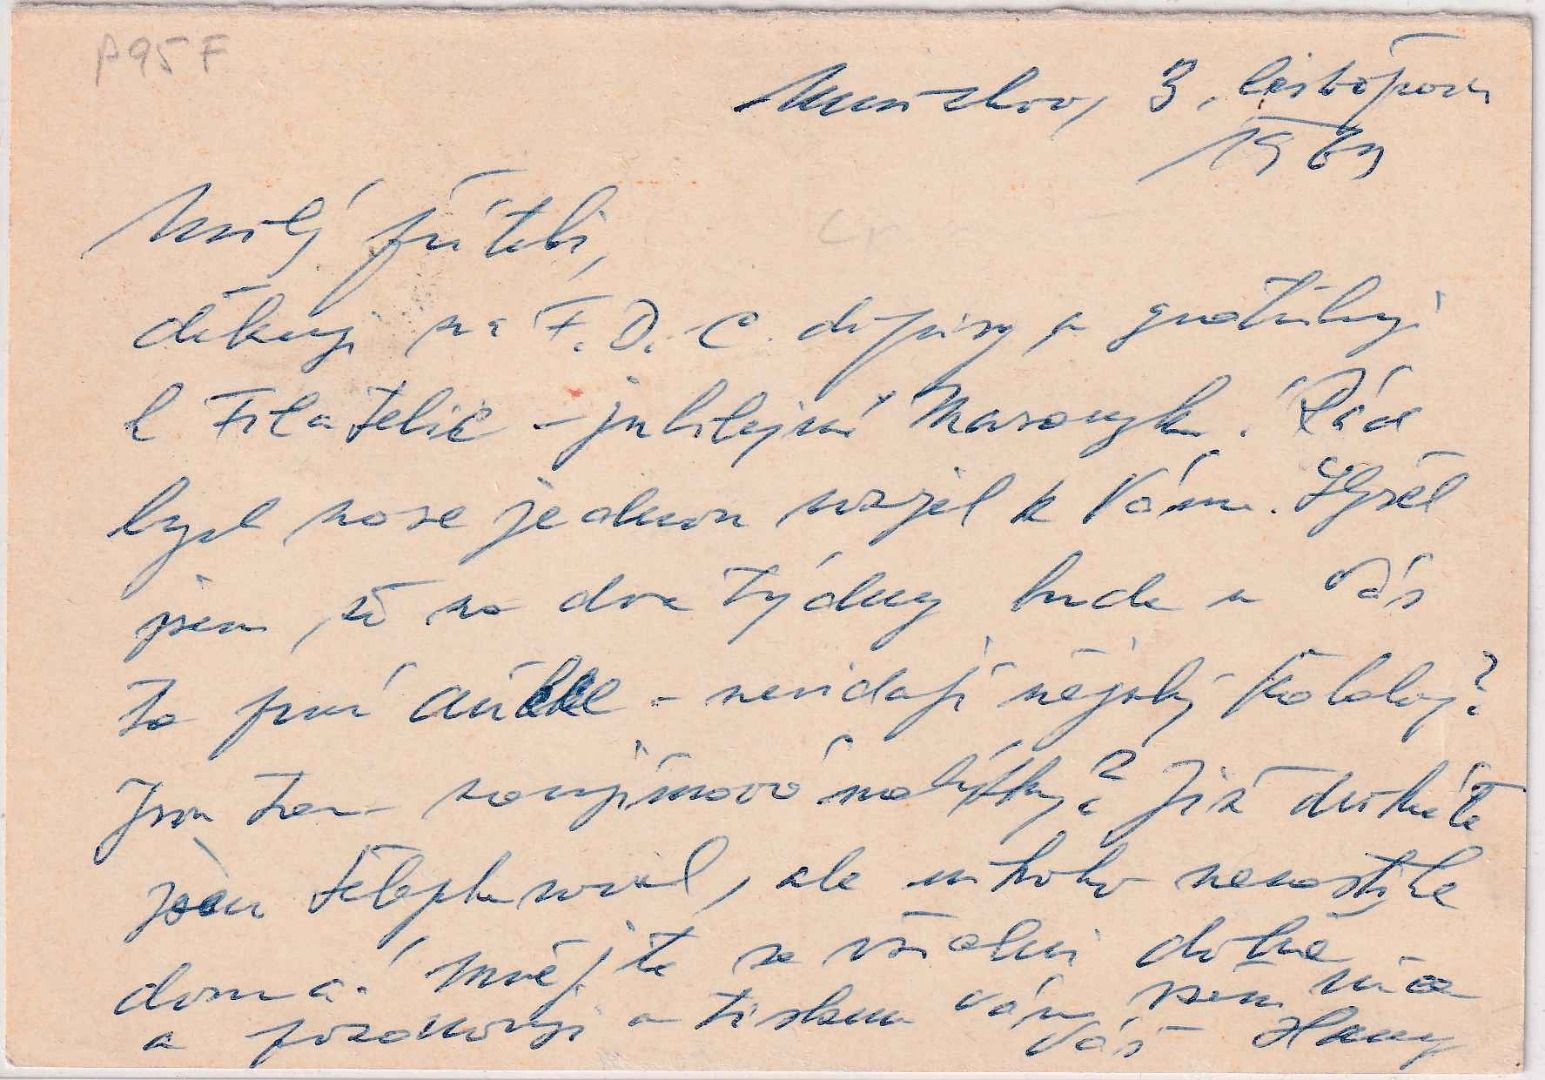 P95F
3. listopadu
1969
Milý příteli,
děkuji za F.D.C. dopisy a gratuluji
k Filatelii - jubilejní Masaryk! Rád
bych zase jednou zajel k Vám. Slyšel
jsem, že za dva týdny bude u Vás
ta první aukce - nevidají nějaký katalog?
Jsou tam zajímavé nabídky? Již dvakráte
jsem telefonoval, ale nikoho nezastihl
doma! Mějte se všichni dobře
a pozdravuji a tisknu Vám
Váš